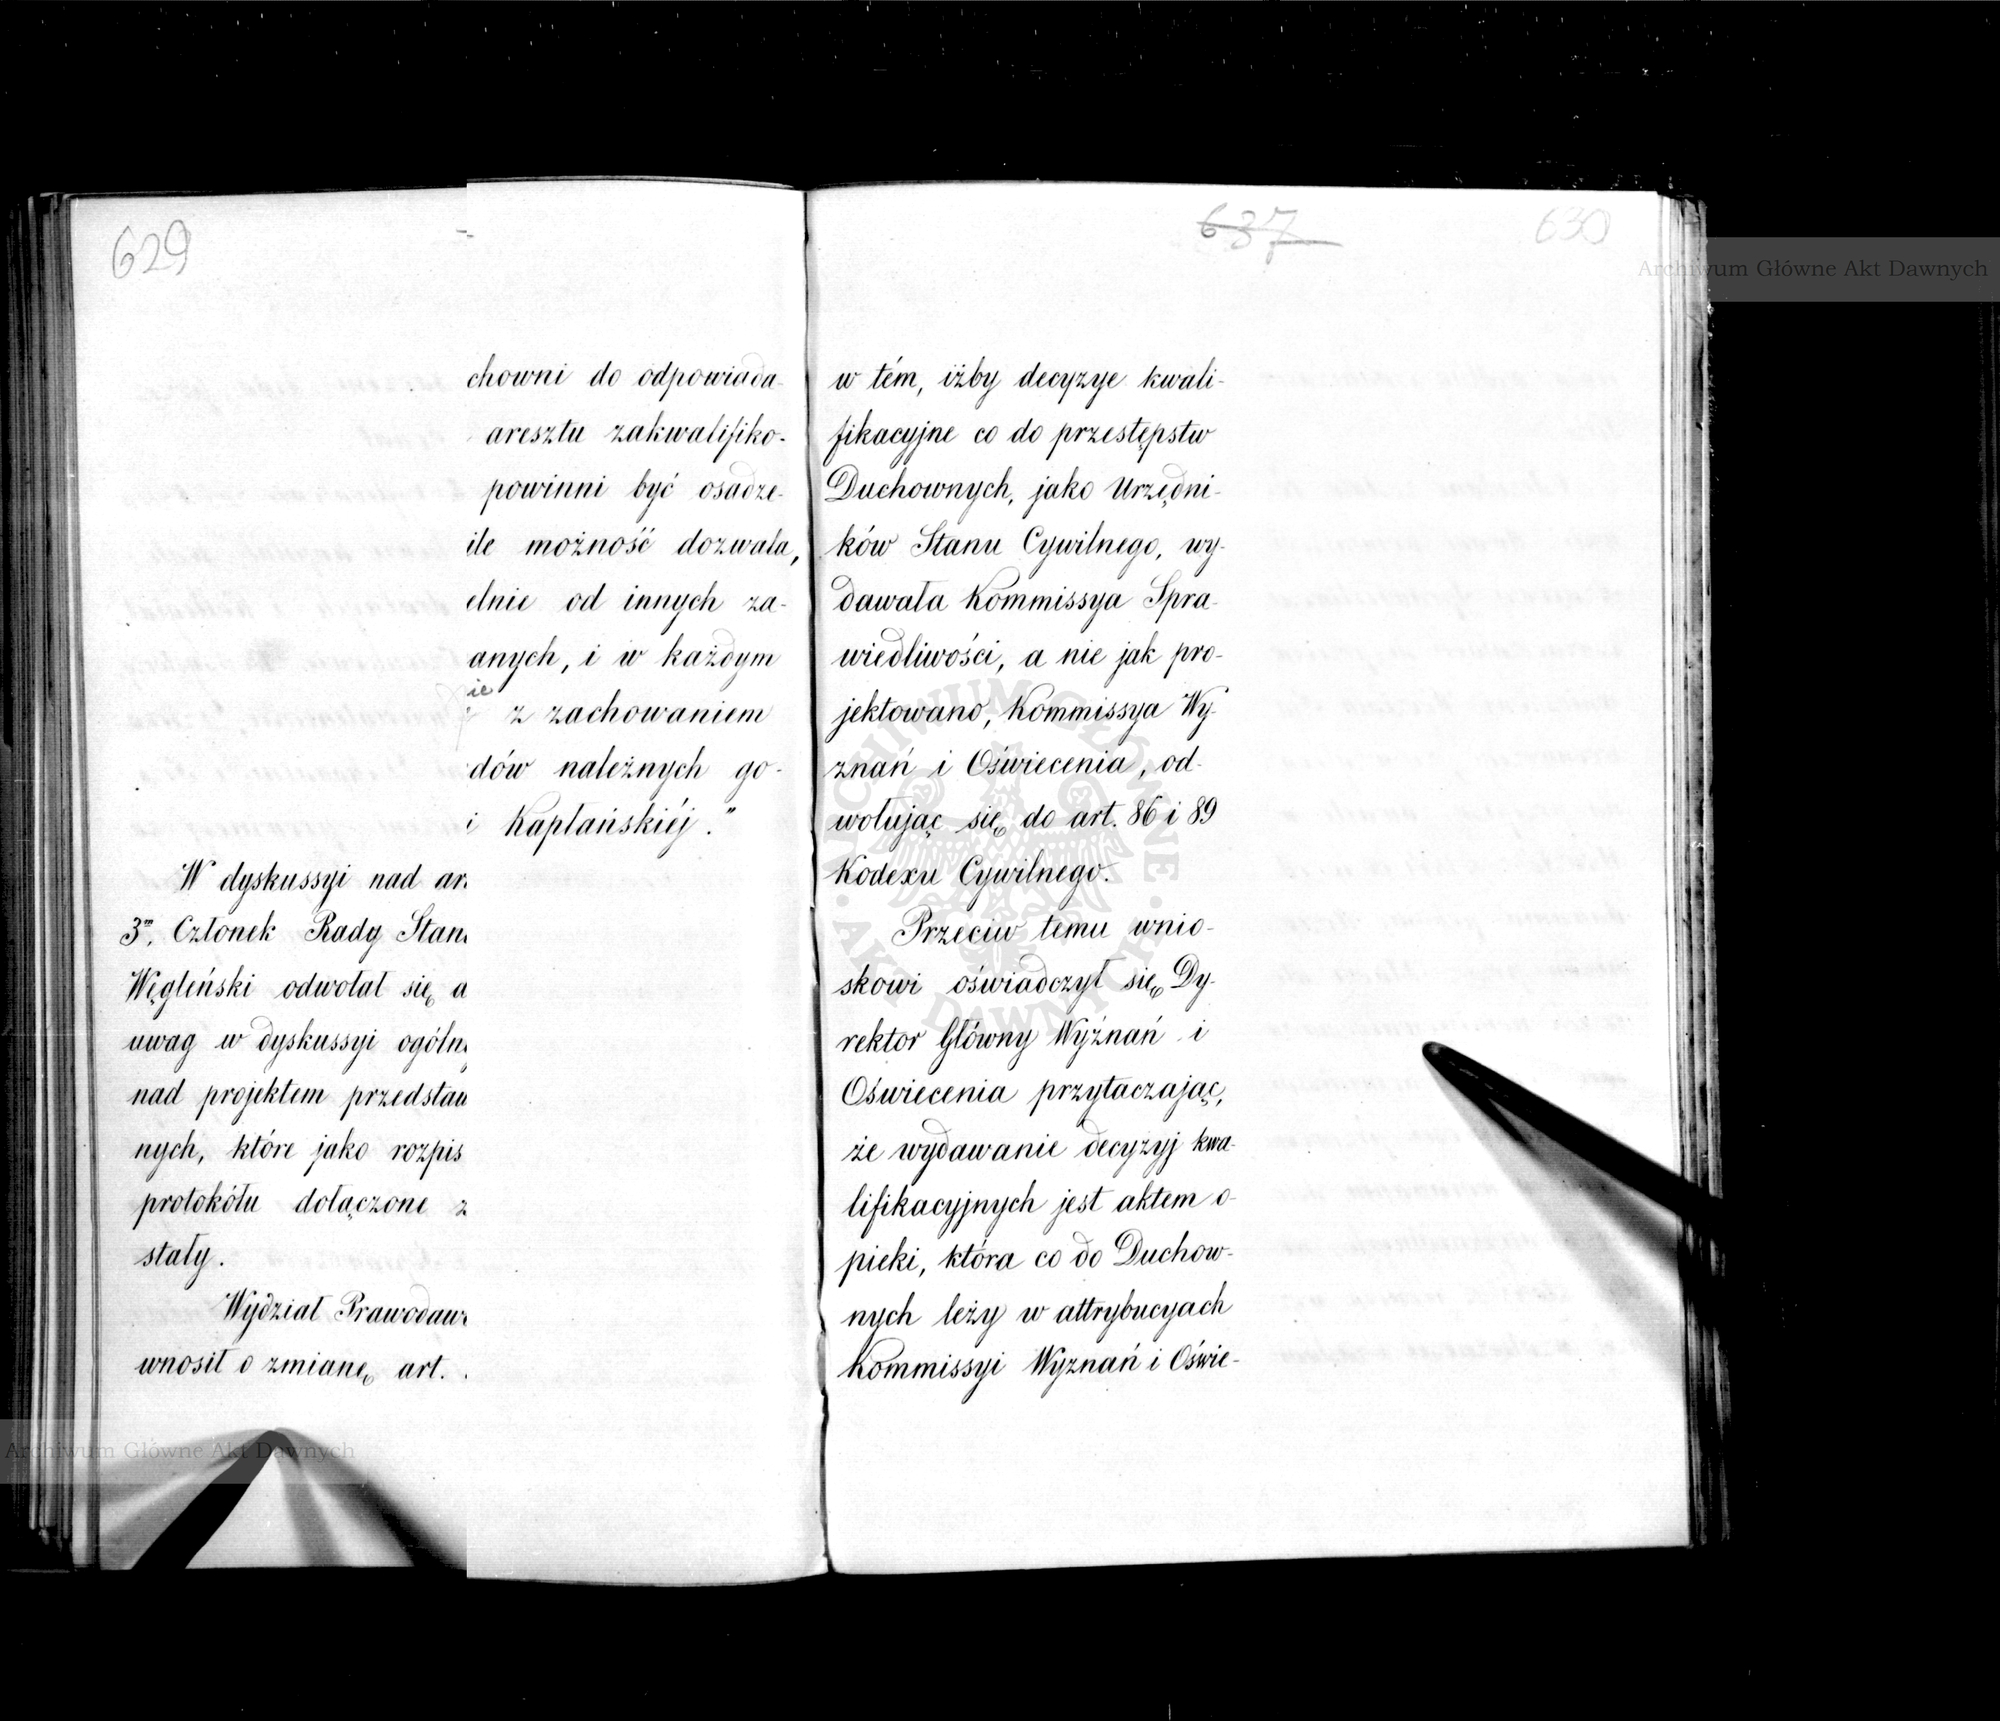 629
chowni do odpowiada-
aresztu zakwalifiko-
powinni być osadze-
ile możność dozwala,
elnie od innych za-
anych, i w każdym
ie
z zachowaniem
dów należnych go-
i Kapłańskiéj."
W dyskussyi nad ar
3m, Członek Rady Stan
Węgleński odwołał się
uwag w dyskussyi ogóln
nad projektem przedstaw
nych, które jako rozpis
protokółu dołączone z
stały.
Wydział Prawodaw
wnosił o zmianę art.
637
630
w tém, iżby decyzye kwali-
fikacyjne co do przestępstw
Duchownych, jako Urzędni-
ków Stanu Cywilnego, wy-
dawała Kommissya Spra-
wiedliwości, a nie jak pro-
jektowano, Kommissya Wy-
znań i Oświecenia, od-
wołując się do art. 86 i 89
Kodexu Cywilnego.
Przeciw temu wnio-
skowi oświadczył się Dy-
rektor Główny Wyznań i
Oświecenia przytaczając,
że wydawanie decyzyj kwa-
lifikacyjnych jest aktem o-
pieki, która co do Duchow-
nych leży w attrybucyach
Kommissyi Wyznań i Oświe-
Archiwum Główne Akt Dawnych
Archiwum Główne Akt Dawnych
ARCHIWUM GŁÓWNE AKT DAWNYCH